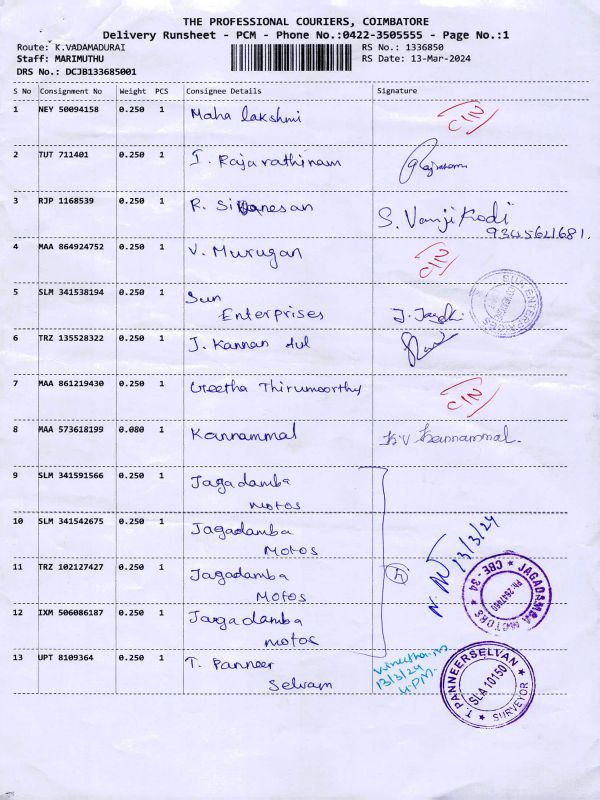 THE PROFESSIONAL COURIERS, COIMBATORE
Delivery Runsheet - PCM - Phone No.:0422-3505555 - Page No.:1
Route: K.VADAMADURAI RS No.: 1336850
Staff: MARIMUTHU RS Date: 13-Mar-2024
DRS No.: DCJB133685001
S No Consignment No Weight PCS Consignee Details Signature
1 NEY 50094158 0.250 1 Maha lakshmi
2 TUT 711401 0.250 1 I. Rajarathinam
3 RJP 1168539 0.250 1 R. Sivanesan S. Vanjikodi
9345641681.
4 MAA 864924752 0.250 1 V. Murugan
5 SLM 341538194 0.250 1 Sun
Enterprises
SUN ENTERPRISES
6 TRZ 135528322 0.250 1 J. Kannan
7 MAA 861219430 0.250 1 Geetha Thirumoorthy
8 MAA 573618199 0.080 1 Kannammal K.V Kannammal.
9 SLM 341591566 0.250 1 Jagadamba
Motos
10 SLM 341542675 0.250 1 Jagadamba
Motos
13/3/24
11 TRZ 102127427 0.250 1 Jagadamba
Motos
4
JAGADAMBA MOTORS CBE - 34
12 IXM 506086187 0.250 1 Jagadamba
Motos
13 UPT 8109364 0.250 1 T. Panneer
Selvam
13/3/24
T. PANNEERSELVAN
SLA 10150
SURVEYOR